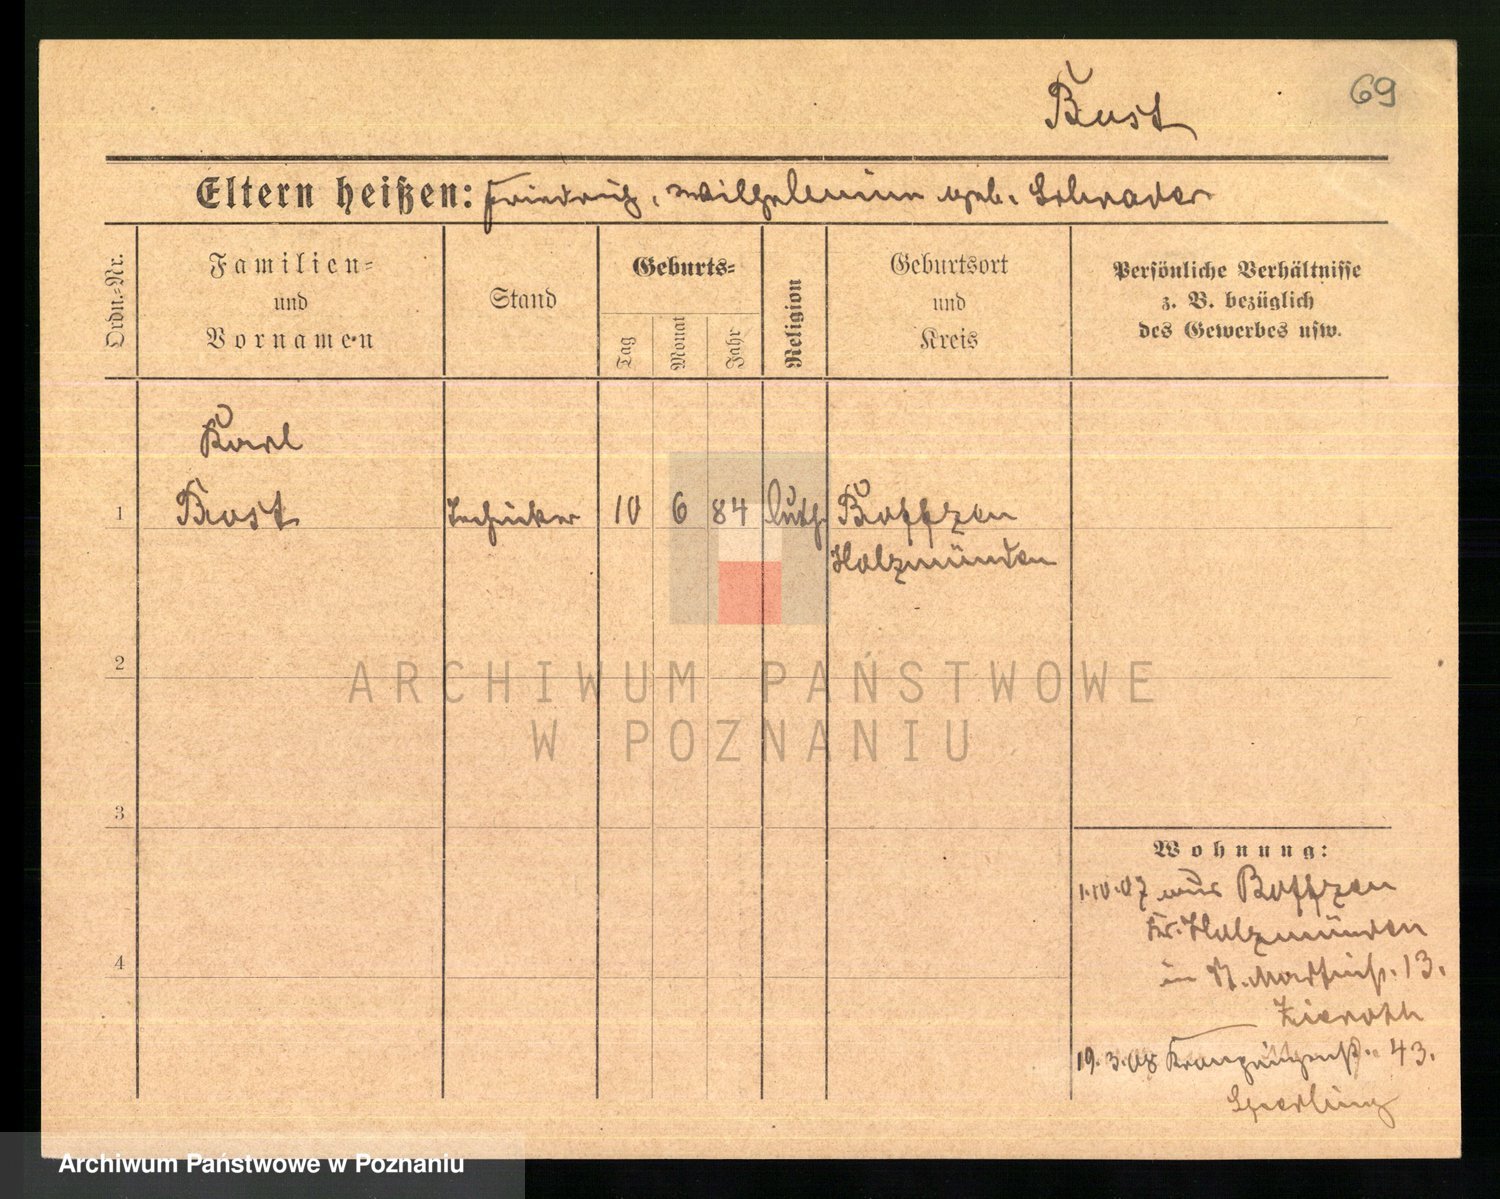 69
Bust
Eltern heißen: Friedrich, Wilhelmine geb. Schrader
Ordn.-Nr.
Familien-
und
Vornamen
Stand
Geburts-
Tag
Monat
Jahr
Religion
Geburtsort
und
Kreis
Persönliche Verhältnisse
z. B. bezüglich
des Gewerbes usw.
Karl
1 Bust Techniker 10 6 84 luth. Boffzen
Holzminden
2
3
4
ARCHIWUM PAŃSTWOWE
W POZNANIU
Wohnung:
1.10.07 aus Boffzen
Kr. Holzminden
in St. Martinstr. 13.
Zieroth
19.3.08 43.
Sperling
Archiwum Państwowe w Poznaniu